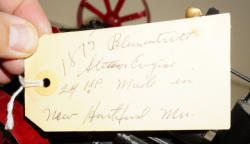 1877 Blumentritt
Steam Engine
24 HP Made in
New Hartford Mn.